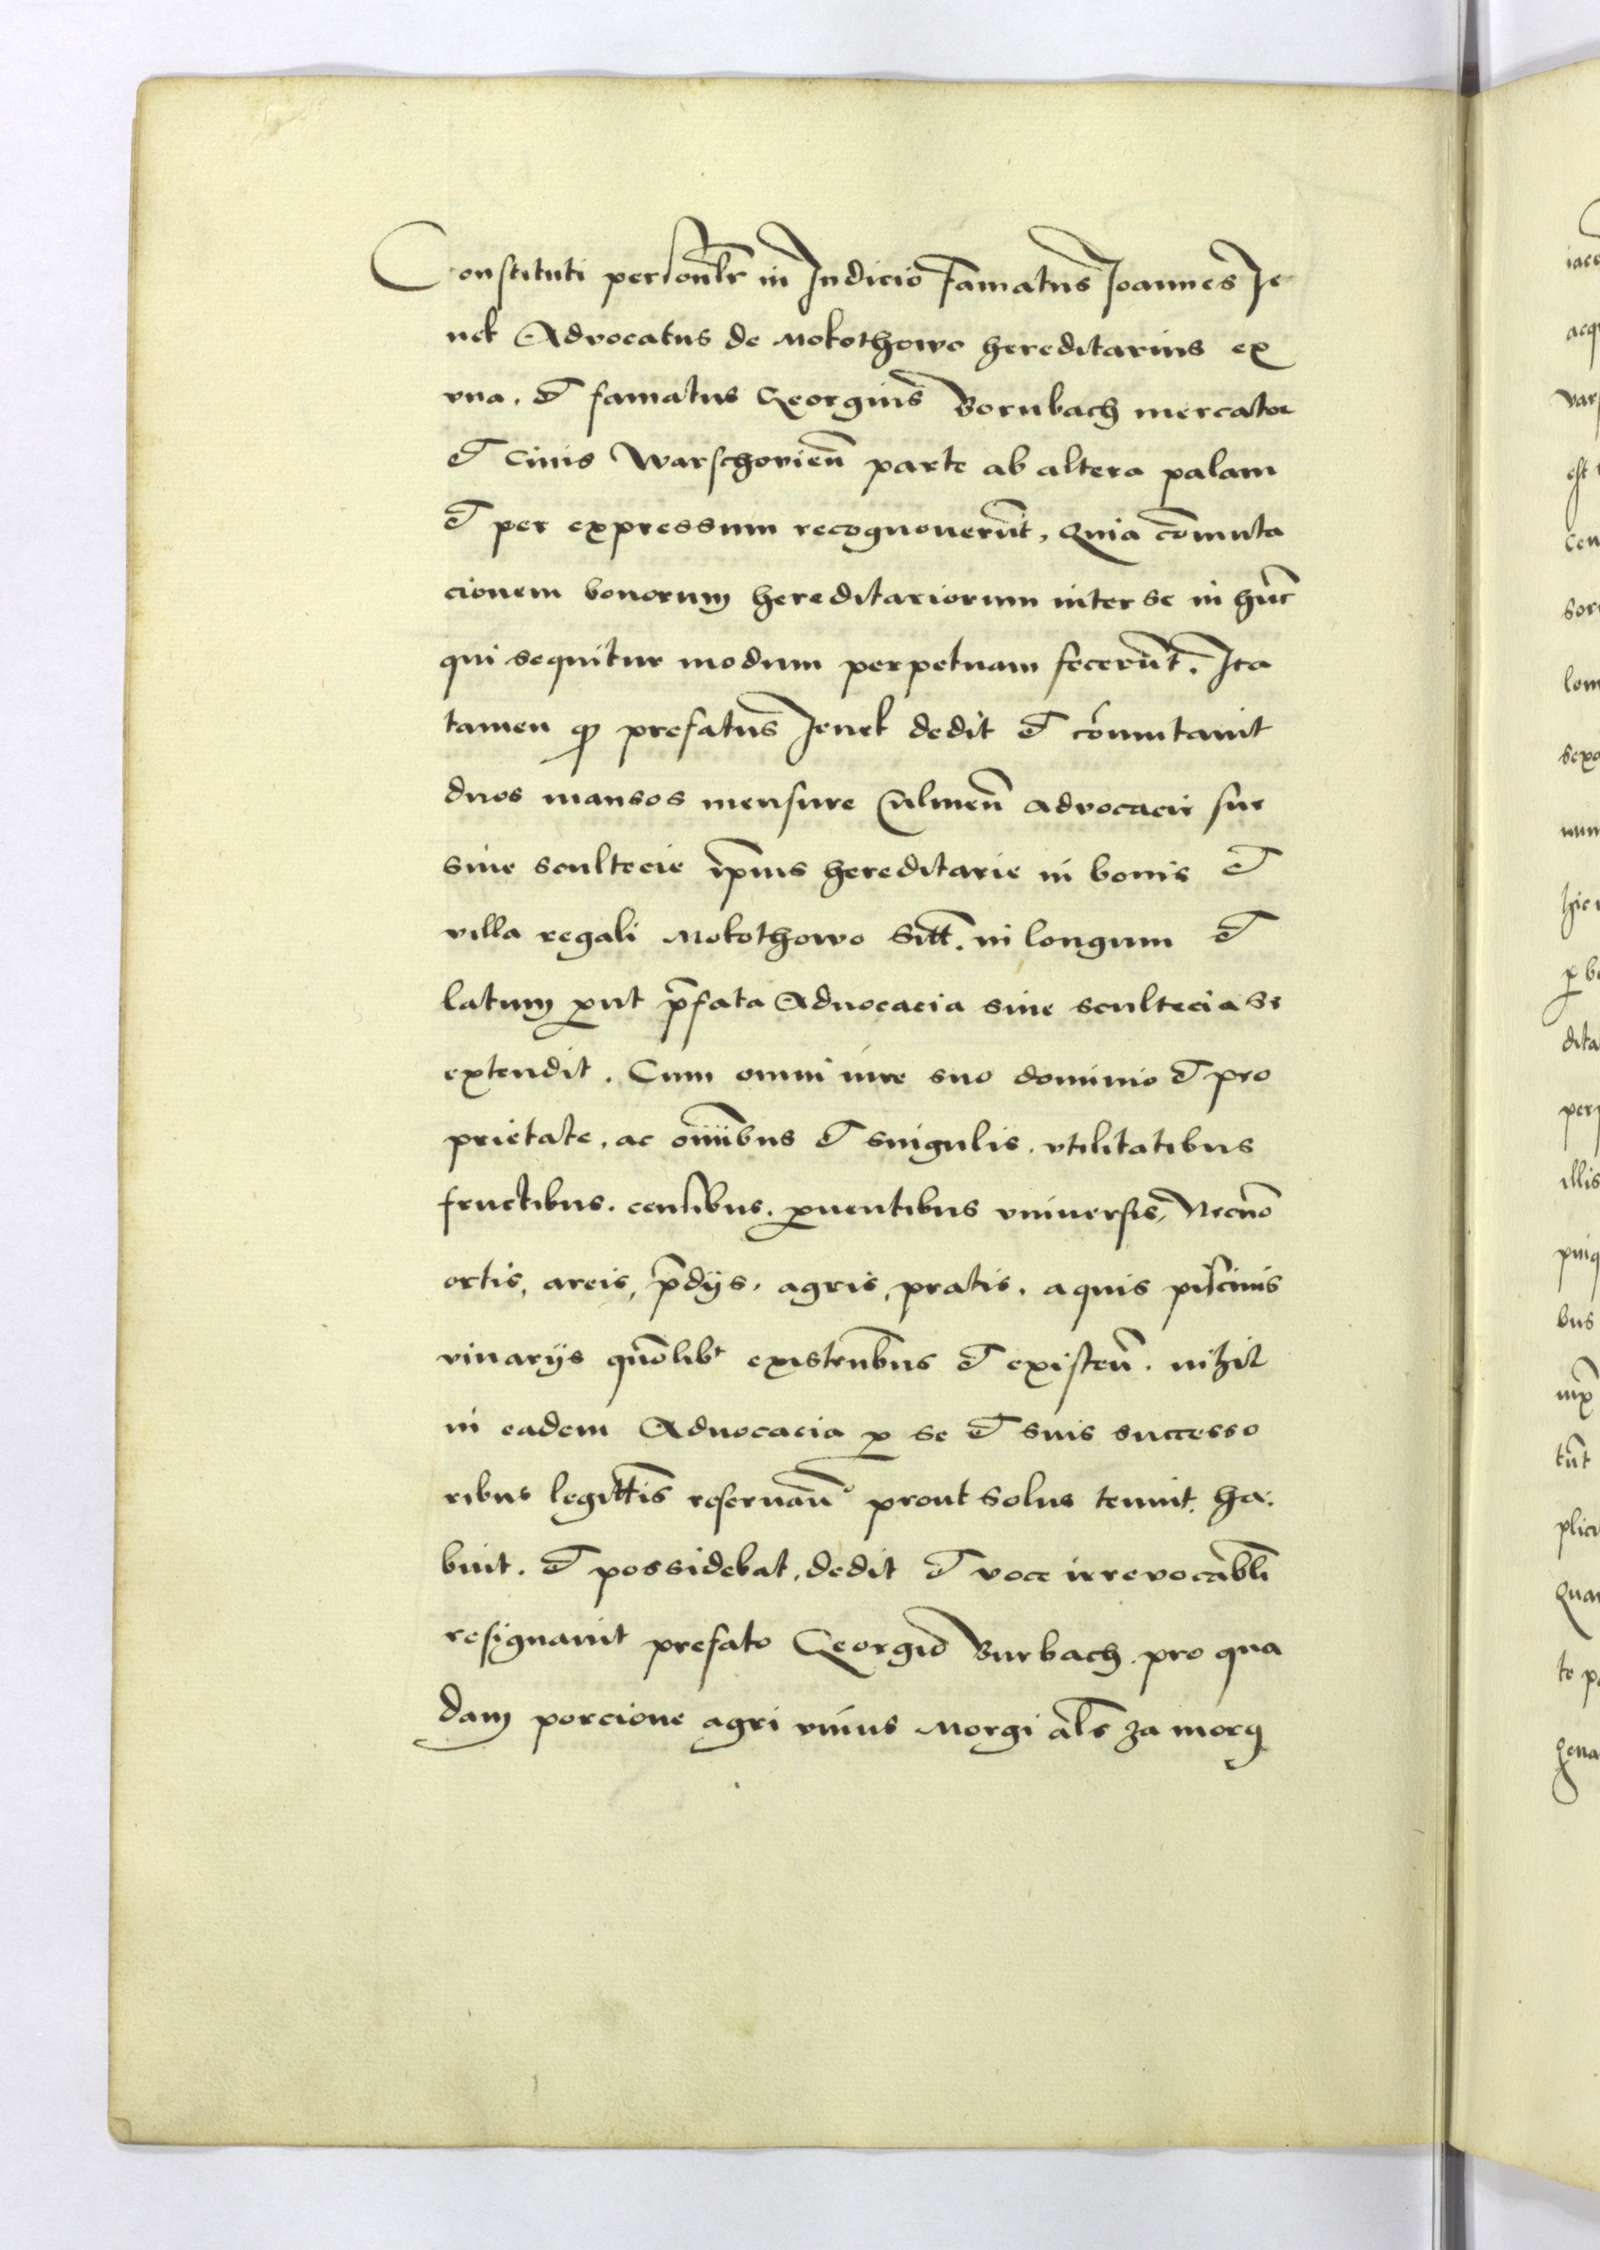 Constituti personłr in Judicio famatus Joannes Je
nek Advocatus de Mokothowo hereditarius ex
vna. et famatus Georgius Bornbach mercator
et Ciuis Warschovieñ parte ab altera palam
et per expressum recognouerūt, Quia cōmuta
cionem bonorum hereditariorum inter se in hūc
qui sequitur modum perpetuam fecerūt. Ita
tamen ꝙ prefatus Jenek dedit et cōmutauit
duos mansos mensure Culmeñ advocacie sue
siue scultecie ip̄ius hereditarie in bonis et
villa regali Mokothowo Sitt̄. in longum et
latum ꝓut p̄fata Aduocacia siue scultecia se
extendit. Cum omni iure suo dominio et pro
prietate, ac oīnibus et singulis. vtilitatibus
fructibus. censibus. ꝓuentibus vniuersis, Necnō
ortis, areis, p̄dijs. agris, pratis. aquis piscinis
viuarijs quōlibt existeñbus et existeñ. nihil
in eadem Aduocacia ꝓ se et suis successo
ribus legitt̄is reseruañ prout solus tenuit. ha
buit. et possidebat, dedit et voce irreuocabłi
resignauit prefato Georgio Burbach pro qua
dam porcione agri vnius Morgi ałs za morg